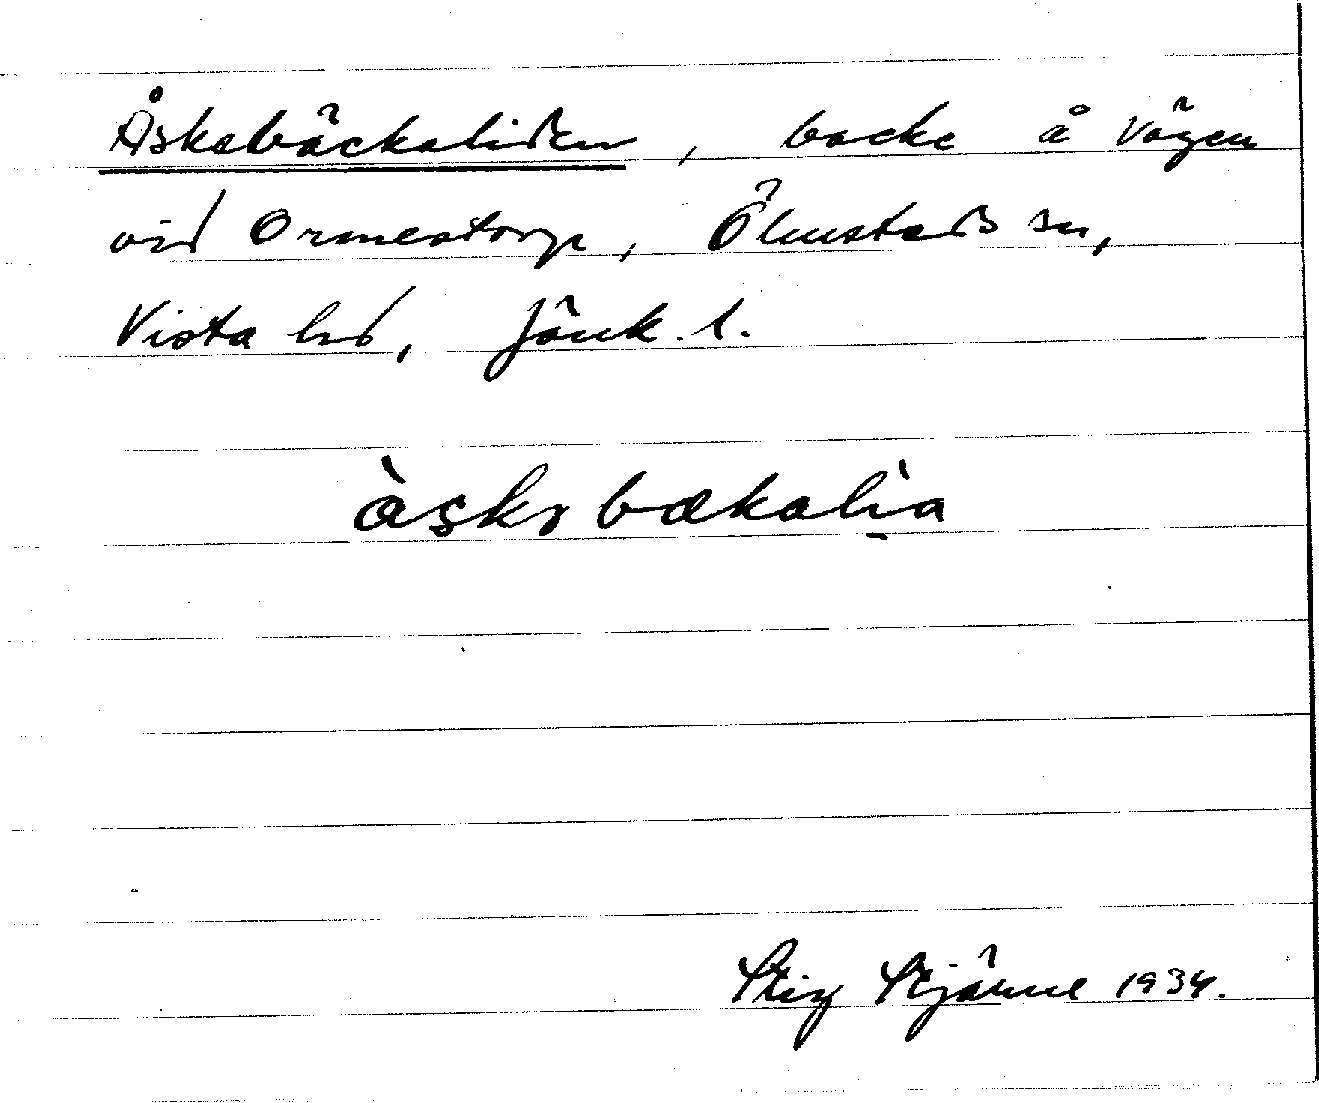 Åskabäckaliden, backe å vägen
vid Ormestorp, Ölmstads sn,
Vista hd, Jönk. l.
àskə bækalìa
Stig Stjärne 1934.